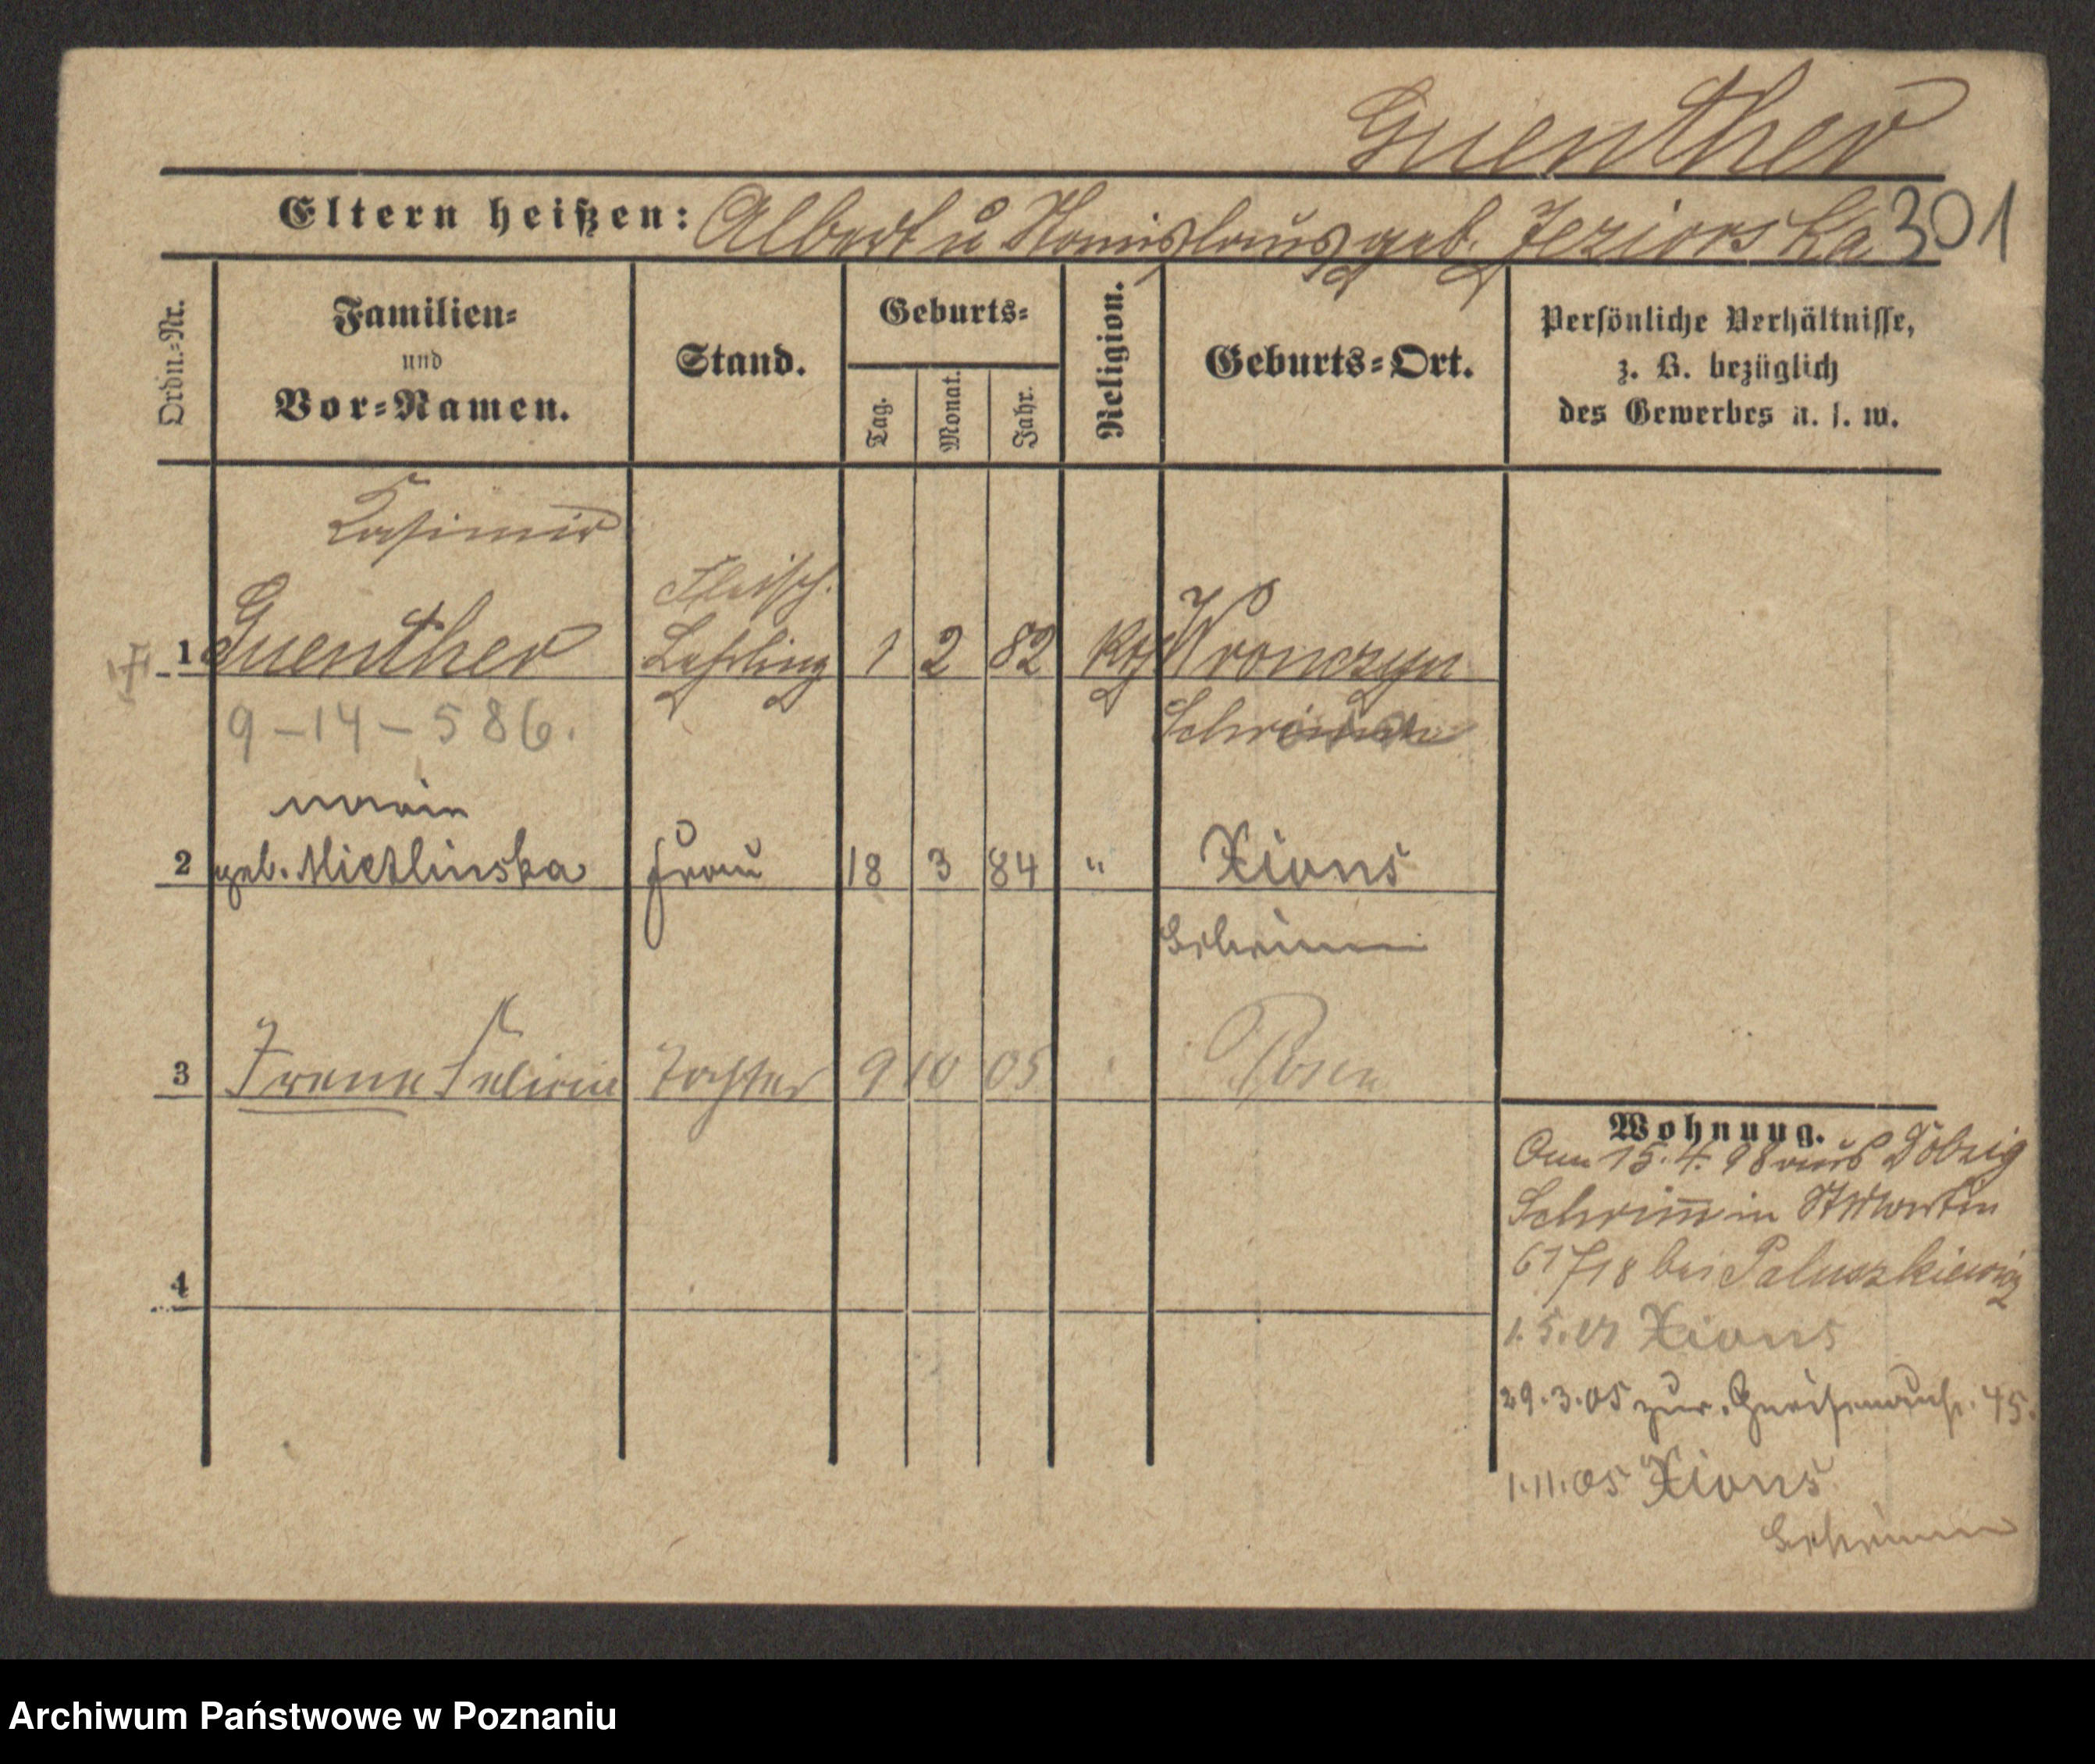 Guenther
Eltern heißen: Albert u Stanislaus geb. Jeziorska 301
Ordn.-Nr.
Familien-
und
Vor-Namen.
Stand.
Geburts-
Tag.
Monat.
Jahr.
Religion.
Geburts-Ort.
Persönliche Verhältnisse,
z. B. bezüglich
des Gewerbes u. s. w.
Kasimir
Fleisch.
1 Guenther Lehrling 1 2 82 Wronczyn
9-14-586. Schrimm
2 geb. Mietlinska Frau 18 3 84 " Xions
Schrimm
3 Irene Tochter 9 10 05 Posen
4
Wohnung.
15.4.98 aus Dolzig
Schrimm in St Martin
61/718 bei Paluszkiewicz
1.5. Xions
29.3.05 zur. Gneisenaustr. 45.
1.11.05 Xions
Schrimm
Archiwum Państwowe w Poznaniu